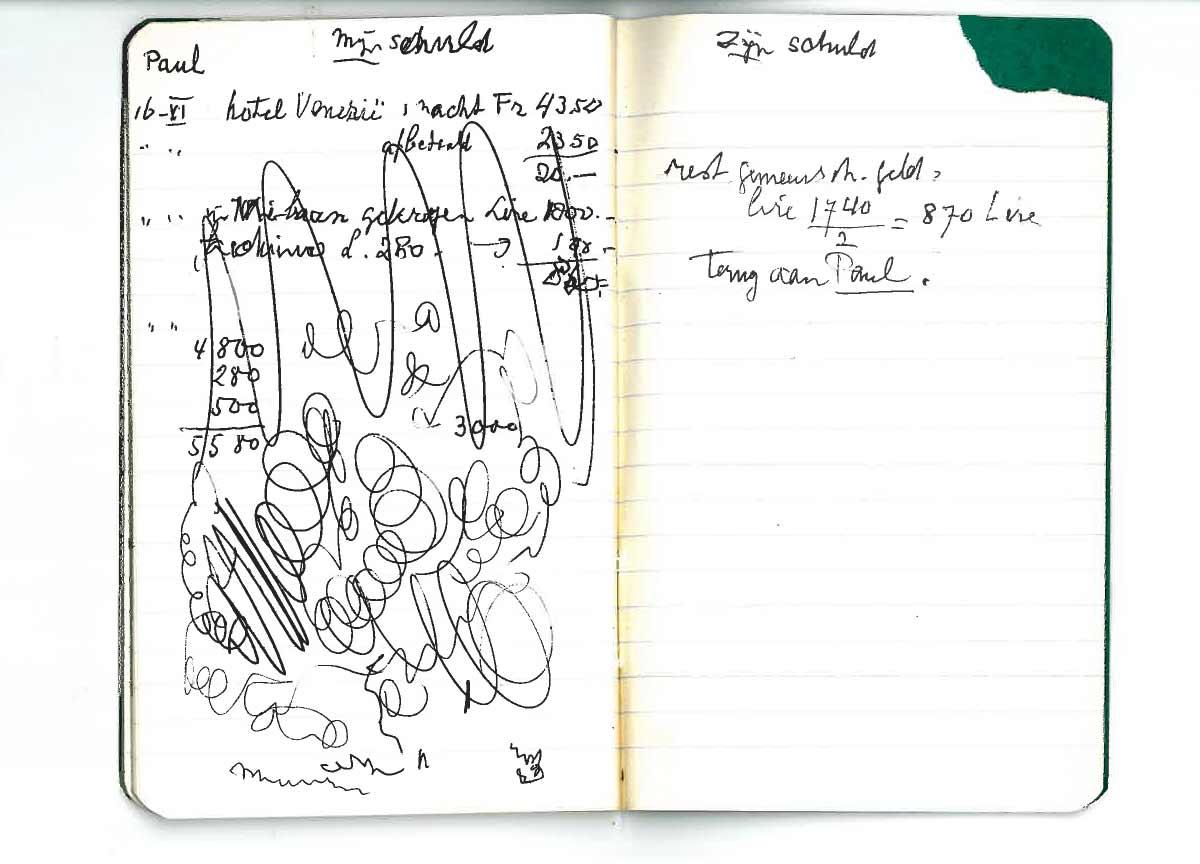 Paul
mijn schuld
16-XI hotel Venezië 1 nacht Fr 43.50
" " afbetaald 23 50
20.—
" " in Milaan gekregen Lire 1800.-
d. 280. →
" "
4 800
280
500
5 5 80
3000
zijn schuld
rest gemeensch. geld,
lire 1740
2
= 870 Lire
Terug aan Paul.